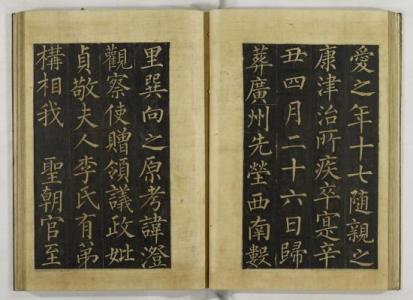 愛之年十七隨親之
康津治所疾卒寔辛
丑四月二十六日歸
葬廣州先塋西南數
里巽向之原考諱澄
觀察使贈領議政妣
貞敬夫人李氏有弟
構相我 聖朝官至